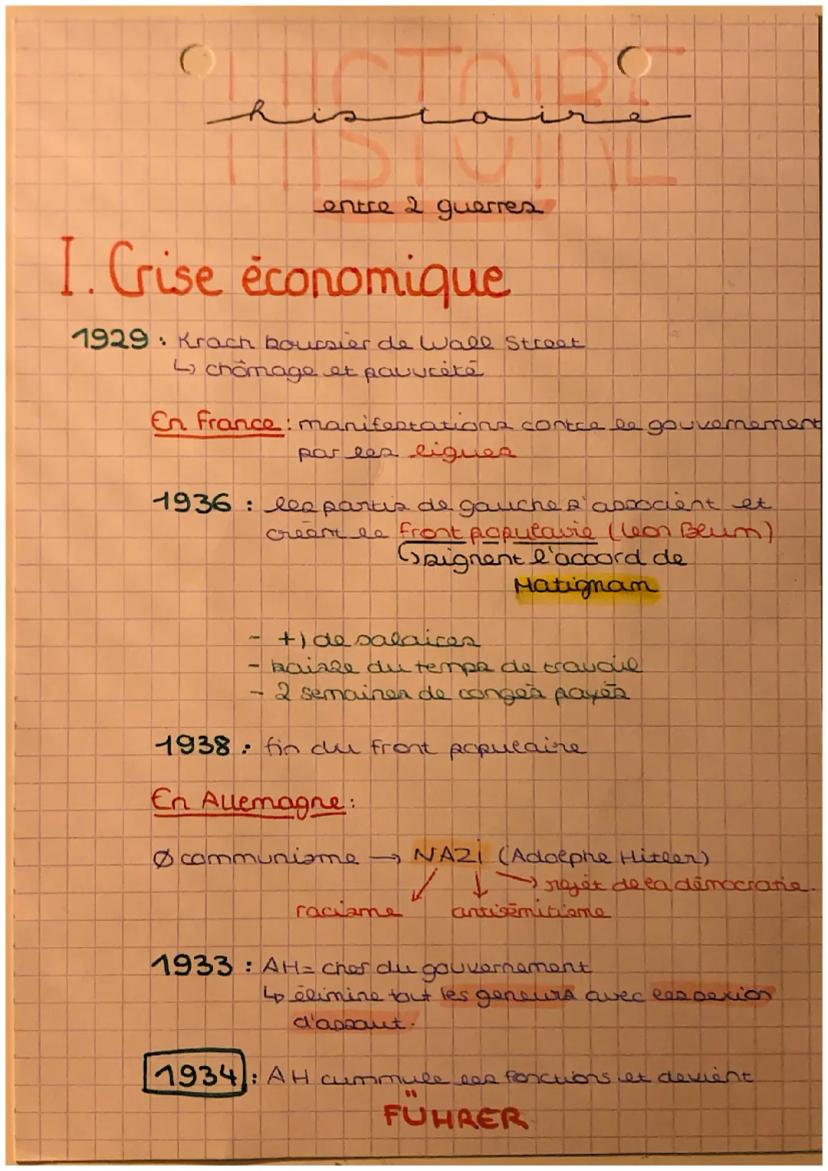 HISTOIRE
histoire
entre 2 guerres
I. Crise économique
1929 : Krach boursier de Wall Street
↳ chômage et pauvreté
En France : manifestations contre le gouvernement
par les ligues
1936 : les partis de gauche s'associent et
créent le front populaire (Leon Blum)
↳ signent l'accord de
Matignam
- +) de salaires
- baisse du temps de travail
- 2 semaines de congés payés
1938 : fin du front populaire
En Allemagne :
Ø communisme → NAZi (Adolphe Hitler)
→ rejet de la démocratie.
racisme antisémitisme
1933 : AH = chef du gouvernement
↳ élimine tout les geneurs avec
d'assaut.
1934 : AH cummule les fonctions et devient
FÜHRER